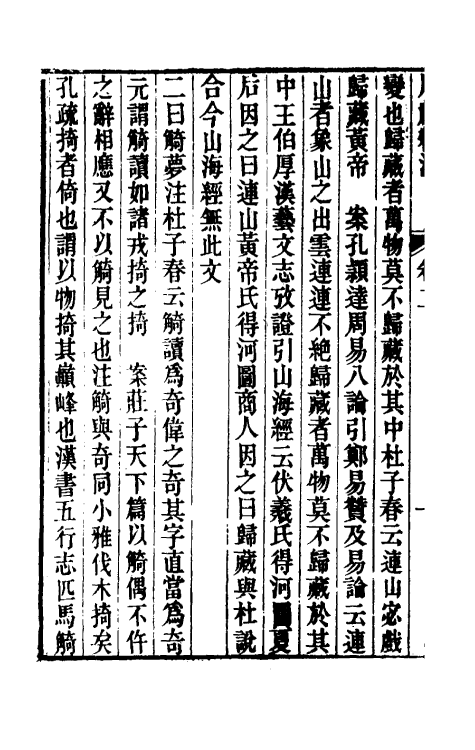 變也歸藏者萬物莫不歸藏於其中杜子春云連山宓戲
歸藏黃帝　案孔穎達周易八論引鄭易贊及易論云連
山者象山之出雲連連不絕歸藏者萬物莫不歸藏於其
中王伯厚漢藝文志攷證引山海經云伏羲氏得河圖夏
后因之曰連山黃帝氏得河圖商人因之曰歸藏與杜說
合今山海經無此文
二曰觭夢注杜子春云觭讀爲奇偉之奇其字直當爲奇
元謂觭讀如諸戎掎之掎　案莊子天下篇以觭偶不仵
之辭相應又不以觭見之也注觭與奇同小雅伐木掎矣
孔疏掎者倚也謂以物掎其巓峰也漢書五行志匹馬觭